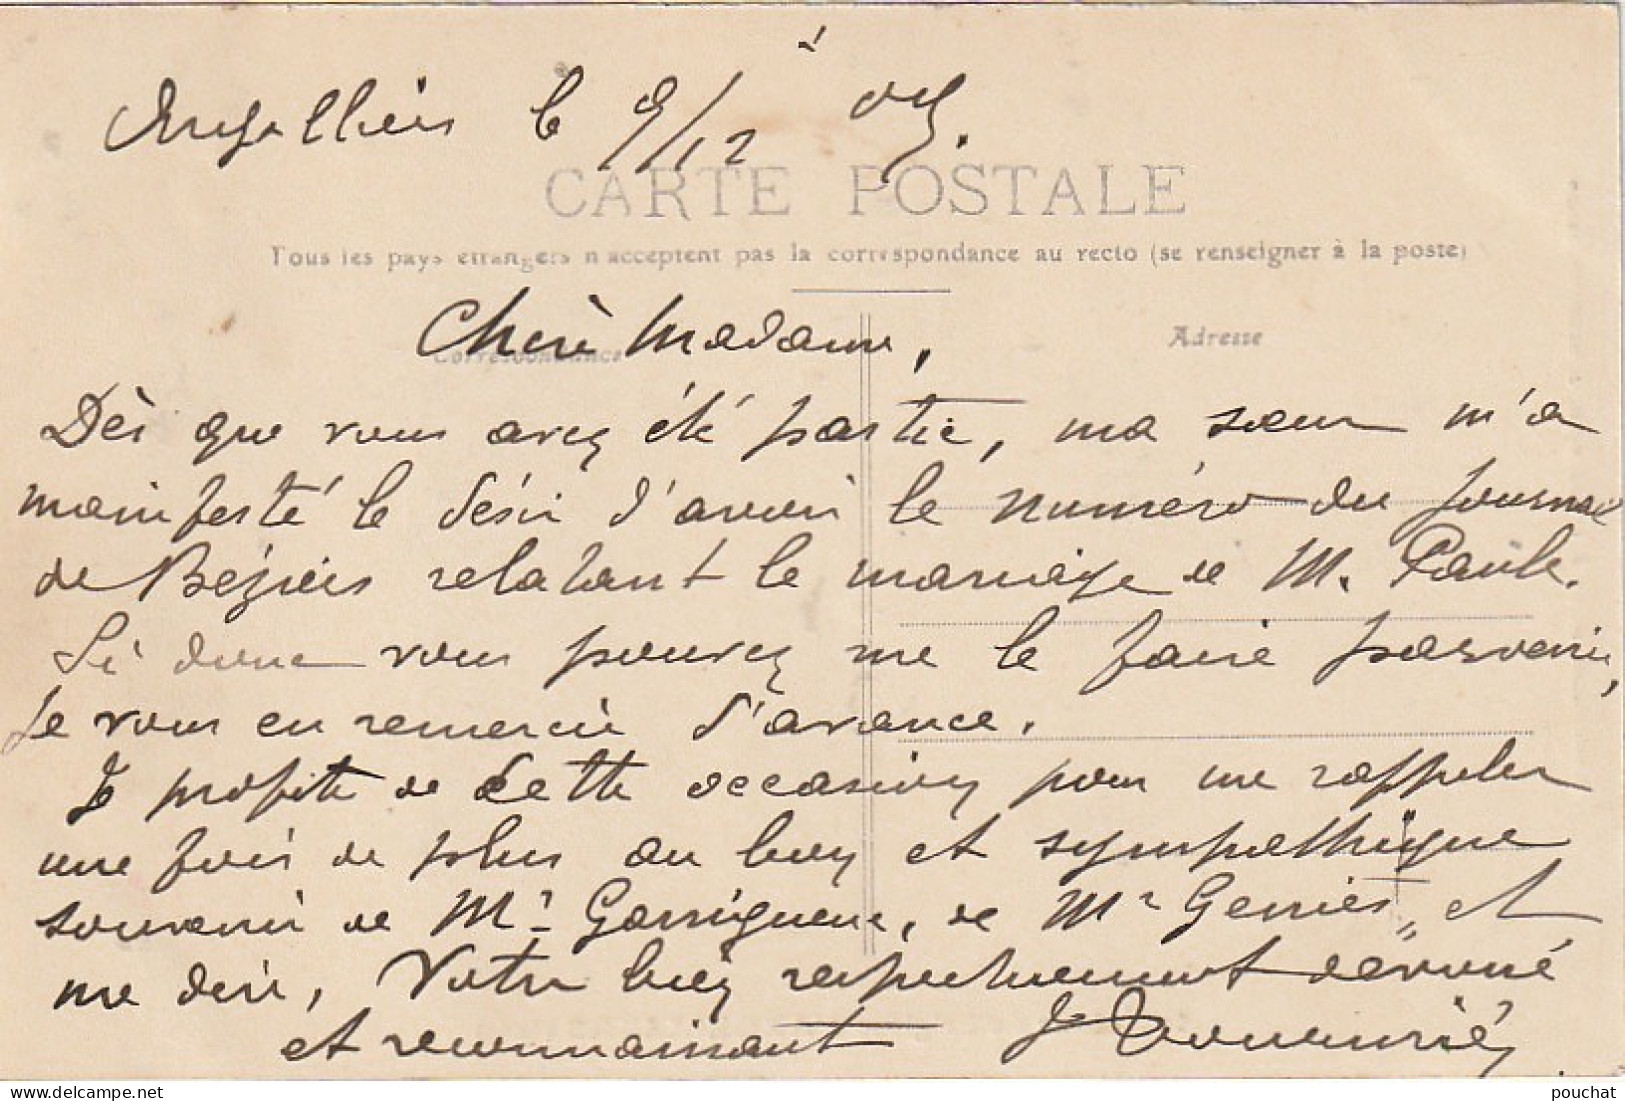 le 9/12 05.
CARTE POSTALE
Tous les pays étrangers n'acceptent pas la correspondance au recto (se renseigner à la poste)
Chère Madame,
Correspondance
Adresse
Dès que vous avez été partie, ma sœur m'a
manifesté le désir d'avoir le numéro du journal
de Béziers relatant le mariage de M. Paul.
Si donc vous pouvez me le faire parvenir,
je vous en remercie d'avance.
Je profite de cette occasion pour me rappeler
une fois de plus au bon et sympathique
souvenir de Mr Garrigueuc, de Mr Genies et
me dire, Votre bien respectueusement dévoué
et reconnaissant J
pouchat